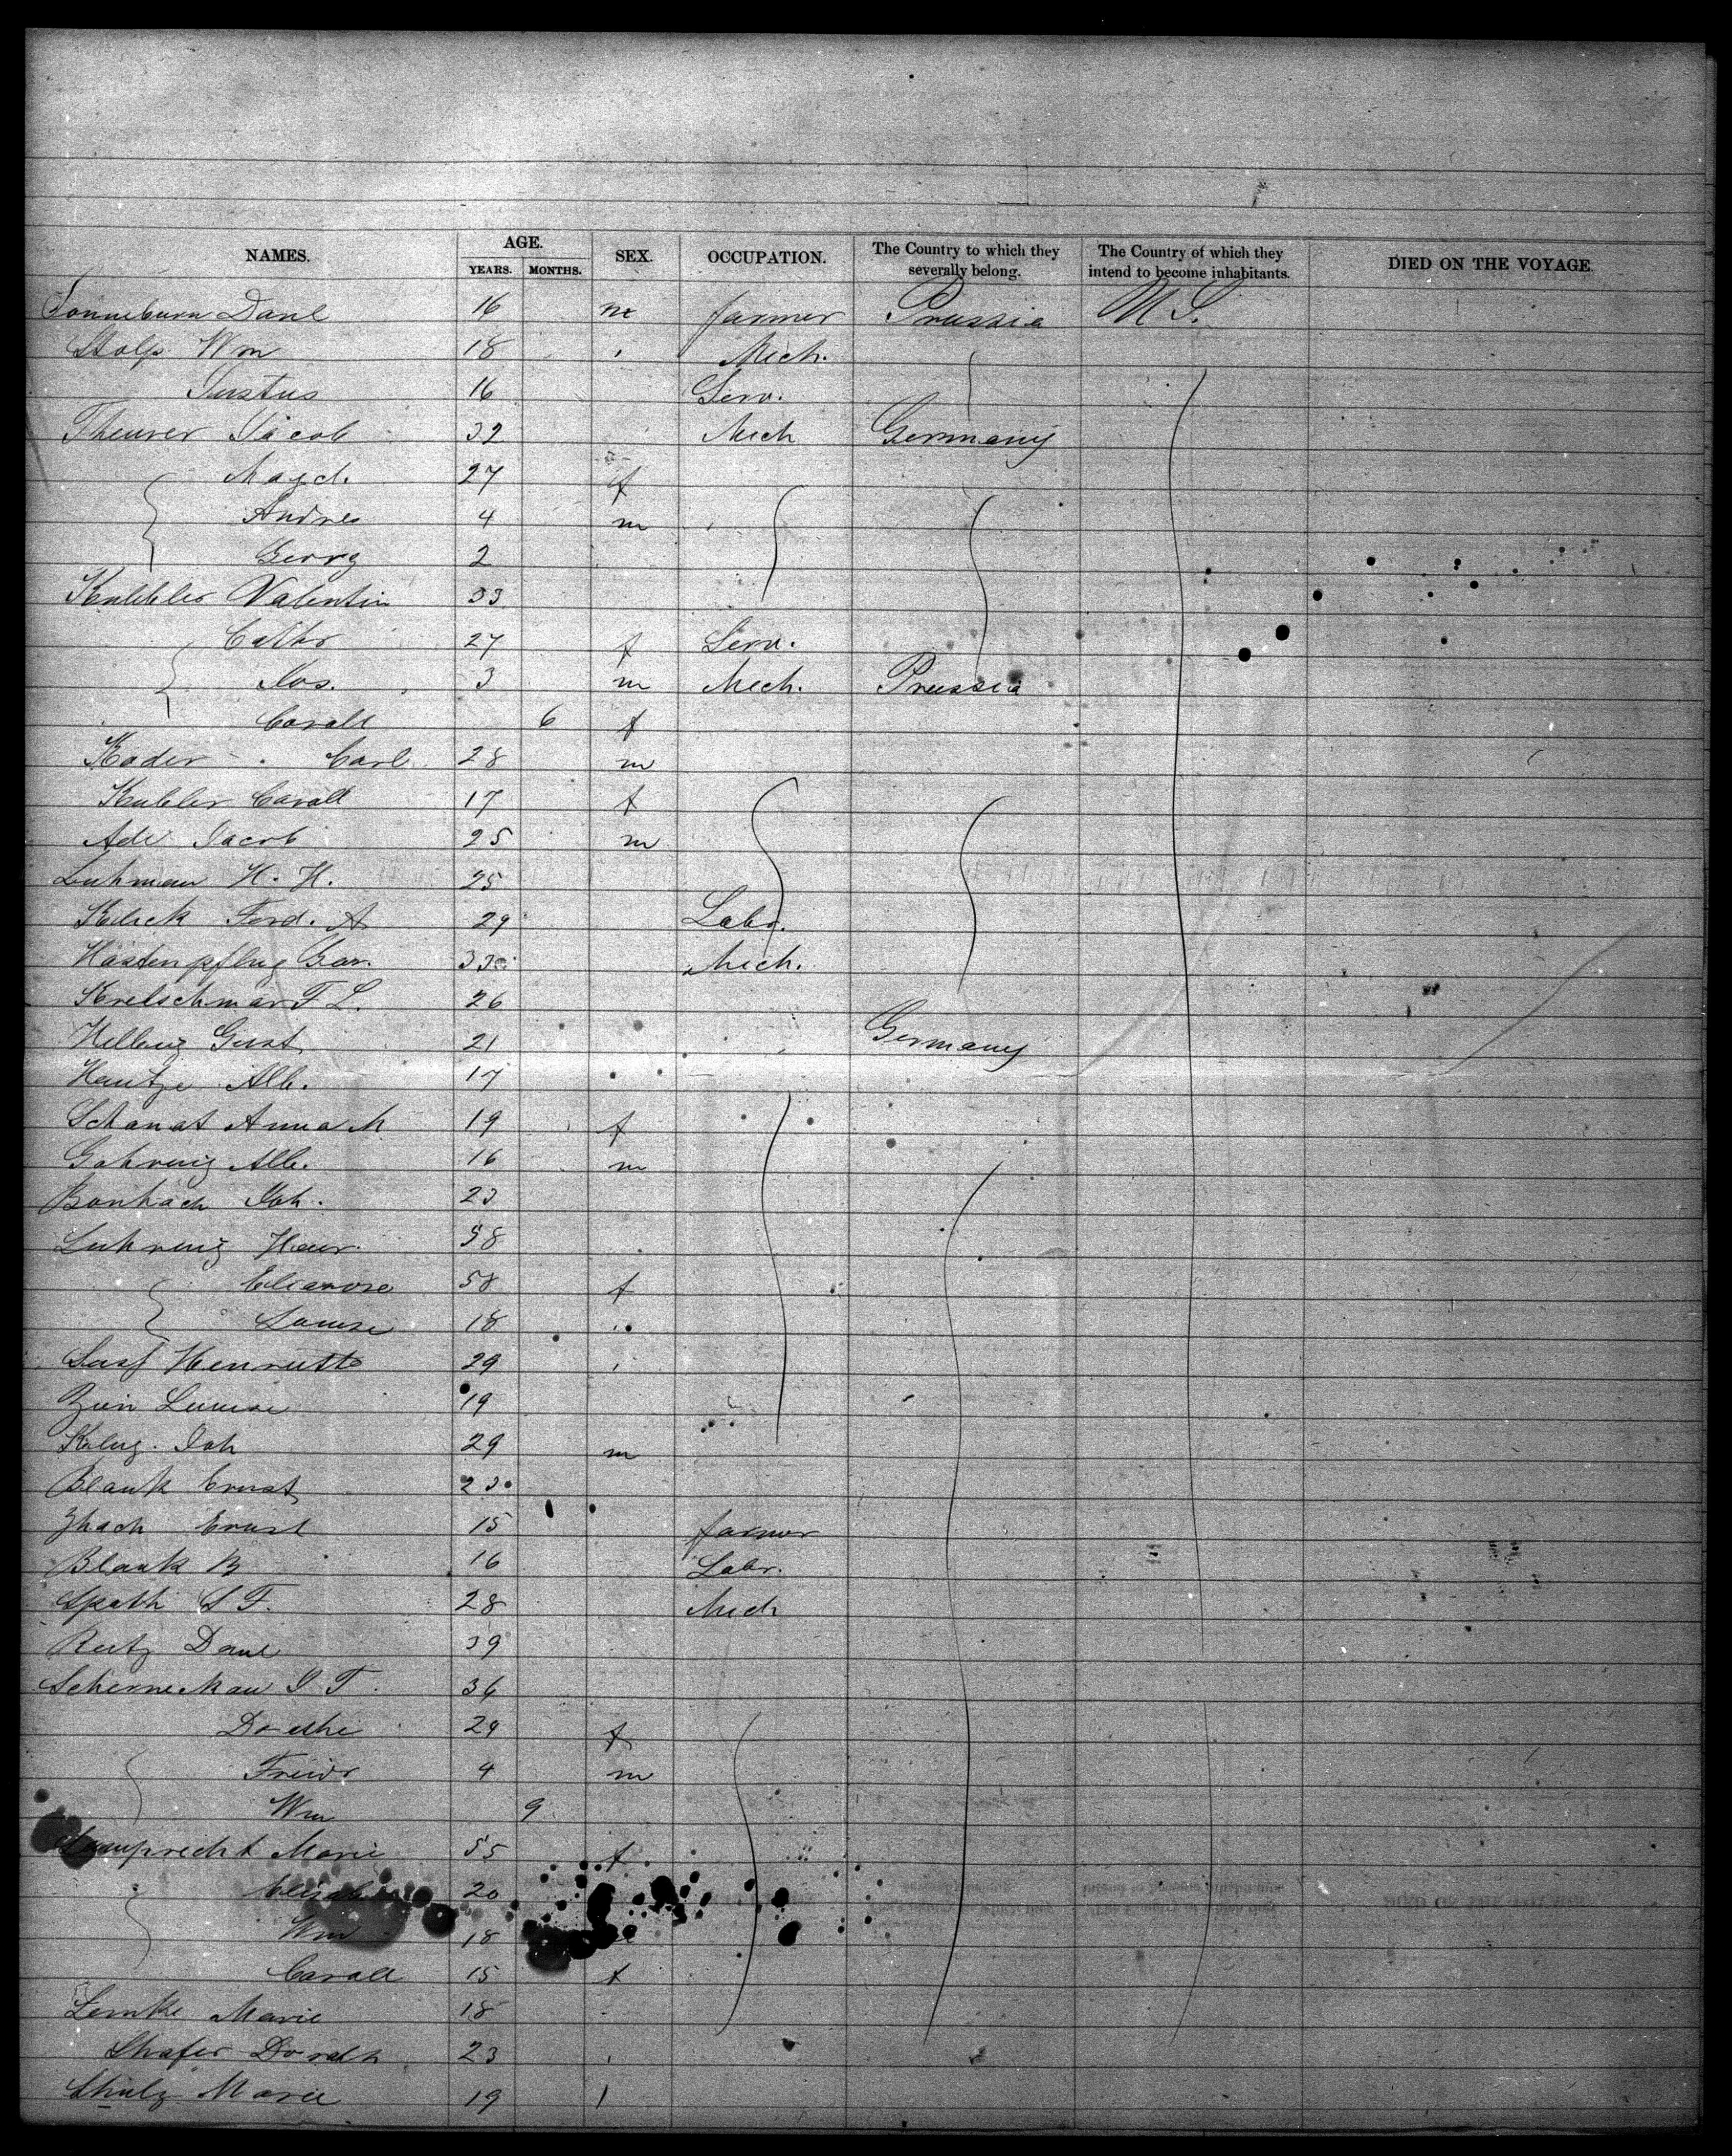 NAMES. AGE. SEX. OCCUPATION. The Country to which they severally belong. The Country of which they intend to become inhabitants. DIED ON THE VOYAGE
YEARS. MONTHS.
Sonneburn Danl 16 m farmer Prussia U S.
Stolp Wm 18 Mech.
Justus 16 Serv.
Theurer Jacob 32 Mech Germany
Magd. 27 f
Andres 4 m
Georg 2
Valentin 33
Cathr 27 f Serv.
Jos. 3 m Mech. Prussia
Caroll 6 f
Kader Carl 28 m
Kubler Caroll 17 f
Ade Jacob 25 m
Luhman H. H. 25
Ferd. A 29 Labr.
Hastenpflug Geo. 33 Mech.
Kretschmar F L. 26
Helbing Gust 21 Germany
Hentze Alb. 17
Schanat Anna M 19 f
Gohring Alb. 16 m
Bonhach Joh. 23
Luhring Heinr. 58
Eleanore 58 f
Louise 18
Henriette 29
Zien Louise 19
Klug. Joh 29 m
Blank Ernst 23
Ernst 15 farmer
Blank B 16 Labr.
Spath S F. 28 Mech
Reitz Danl 39
Scherneckau J F. 36
Dorethe 29 f
Friedr 4 m
Wm 9
Lamprecht Marie 55 f
20
Wm 18
Caroll 15 f
Lemke Marie 18
Shafer Doroth 23
Shulz Marie 19